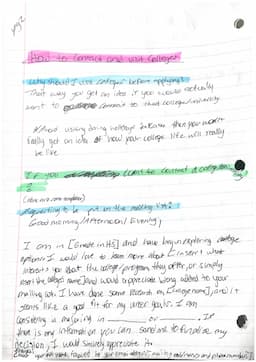 pg 2
How to contact and visit Colleges
Why should I visit colleges before applying?
That way you get an idea if you would actually
want to commit to that college/university.
Avoid visiting during holidays because then you won't
really get an idea of how your college life will really
be like
If you want to contact a college
?
Requesting to be put on the mailing list:
Good morning/Afternoon/Evening,
I am in [Grade in HS] and have begun exploring college
options. I would love to learn more about [insert what
interest you about the college/program they offer, or simply
insert the colleges name] and would appreciate being added to your
mailing list. I have done some research on [college name], and it
seems like a good fit for my career goals. I am
considering majoring in ______ or ______. If
there is any information you can send me to finalize my
decision, I would sincerely appreciate it.